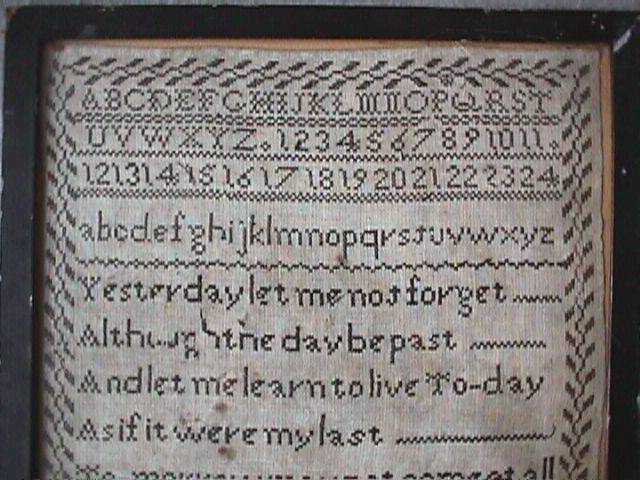 ABCDEFGHIJKLMNOPQRST
UVWXYZ.1234567891011.
12131415161718192021222324
abcdefghijklmnopqrstuvwxyz
Yesterday let me not forget
Although the day be past
And let me learn to live To-day
As if it were my last
at all